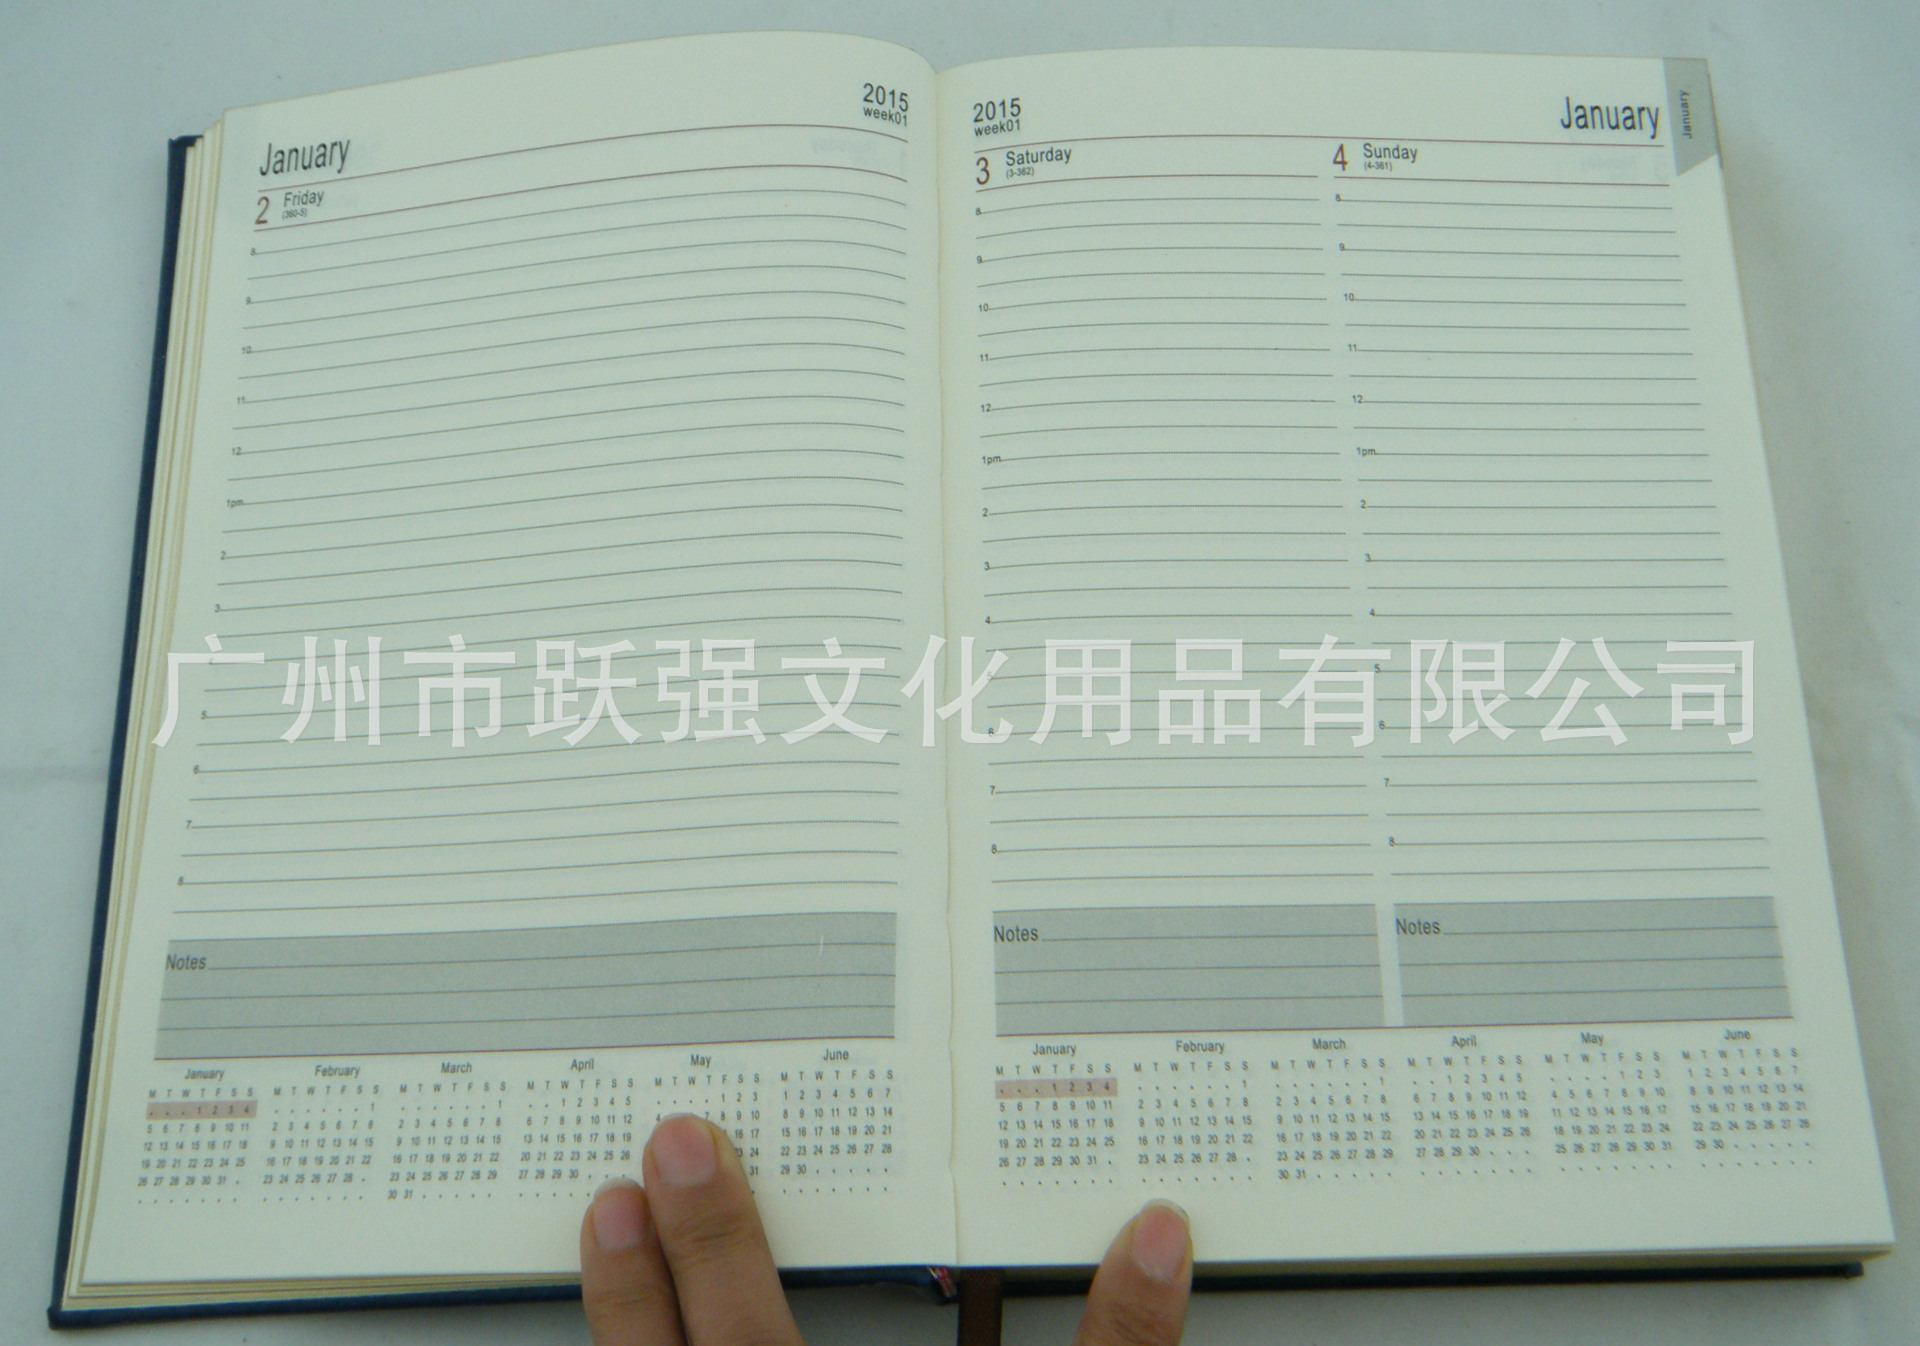 2015
week01
January
2 Friday
(360-5)
8
9
10
11
12
1pm
2
3
4
5
6
7
8
Notes
January February March April May June
M T W T F S S M T W T F S S M T W T F S S M T W T F S S M T W T F S S M T W T F S S
. . . 1 2 3 4 . . . . . . 1 . . . . . . 1 . . 1 2 3 4 5 . . . . 1 2 3 1 2 3 4 5 6 7
5 6 7 8 9 10 11 2 3 4 5 6 7 8 2 3 4 5 6 7 8 6 7 8 9 10 11 12 4 7 8 9 10 8 9 10 11 12 13 14
12 13 14 15 16 17 18 9 10 11 12 13 14 15 9 10 11 12 13 14 15 13 14 15 16 17 18 19 16 17 15 16 17 18 19 20 21
19 20 21 22 23 24 25 16 17 18 19 20 21 22 16 17 18 19 20 21 22 20 21 22 23 24 25 26 23 24 22 23 24 25 26 27 28
26 27 28 29 30 31 . 23 24 25 26 27 28 . 23 24 25 26 27 28 29 27 28 29 30 . . . 31 29 30 . . . . .
. . . . . . . . . . . . . . 30 31 . . . . . . . . . . . . . . . . . . .
2015
week01
January
January
3 Saturday
(3-362)
8
9
10
11
12
1pm
2
3
4
5
6
7
8
Notes
4 Sunday
(4-361)
8
9
10
11
12
1pm
2
3
4
5
6
7
8
Notes
January February March April May June
M T W T F S S M T W T F S S M T W T F S S M T W T F S S M T W T F S S M T W T F S S
. . . 1 2 3 4 . . . . . . 1 . . . . . . 1 . . 1 2 3 4 5 . . . . 1 2 3 1 2 3 4 5 6 7
5 6 7 8 9 10 11 2 3 4 5 6 7 8 2 3 4 5 6 7 8 6 7 8 9 10 11 12 4 5 6 7 8 9 10 8 9 10 11 12 13 14
12 13 14 15 16 17 18 9 10 11 12 13 14 15 9 10 11 12 13 14 15 13 14 15 16 17 18 19 11 12 13 14 15 16 17 15 16 17 18 19 20 21
19 20 21 22 23 24 25 16 17 18 19 20 21 22 16 17 18 19 20 21 22 20 21 22 23 24 25 26 18 19 20 21 22 23 24 22 23 24 25 26 27 28
26 27 28 29 30 31 . 23 24 25 26 27 28 . 23 24 25 26 27 28 29 27 28 29 30 . . . 25 26 27 28 29 30 31 29 30 . . . . .
. . . . . . . . . . . . . . 30 31 . . . . . . . . . . . . . . . . . . . . . . . . . .
广州市跃强文化用品有限公司